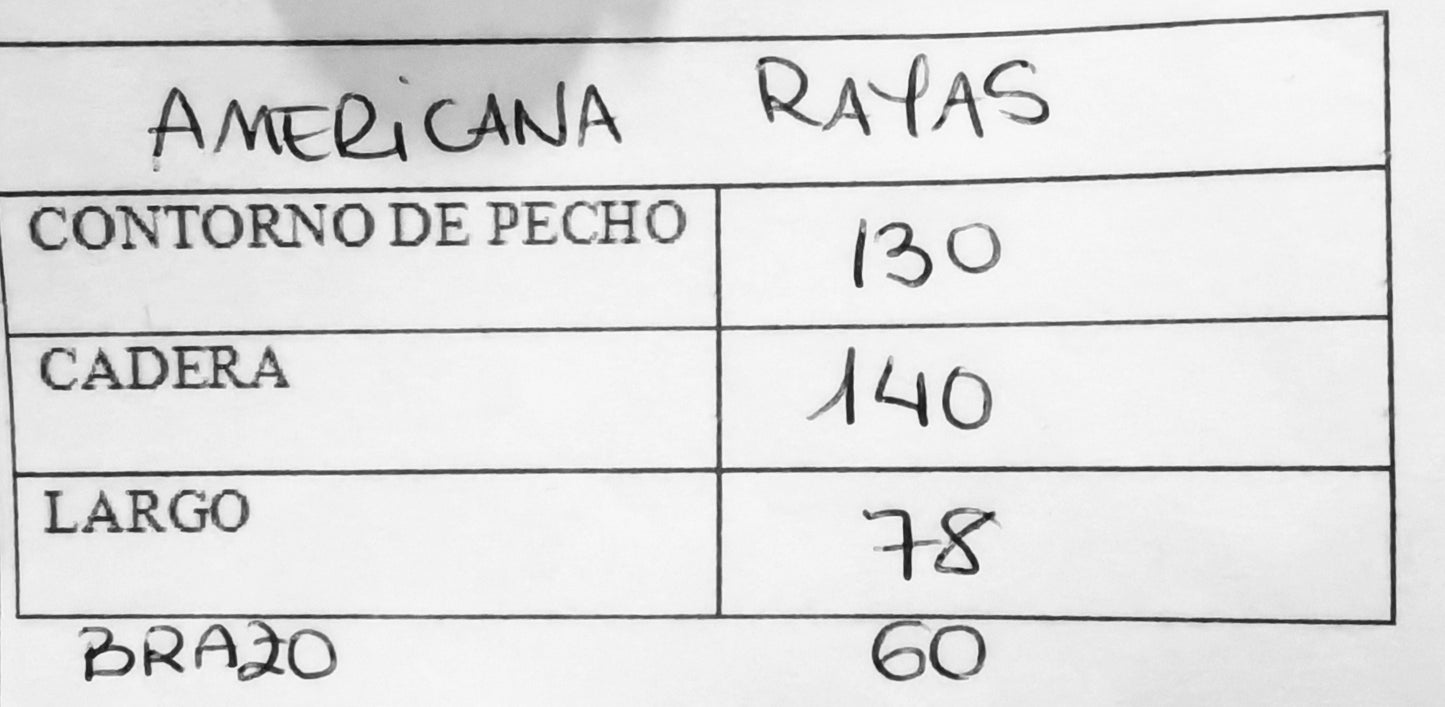 AMERiCANA RAYAS
CONTORNO DE PECHO 130
CADERA 140
LARGO 78
BRAZO 60